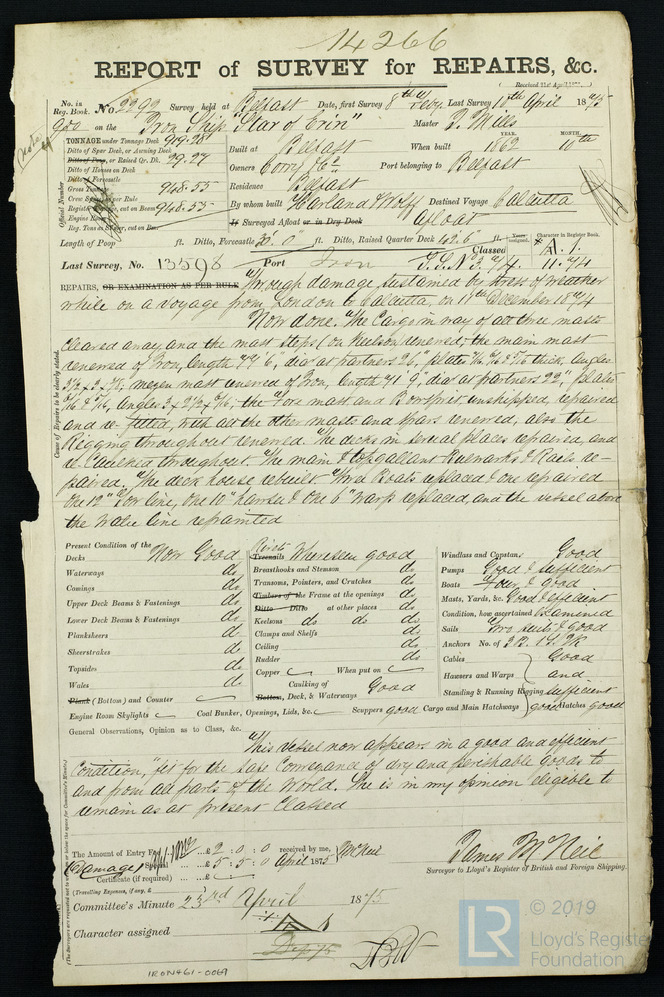 14266
REPORT of SURVEY for REPAIRS, &c.
No. in Reg. Book. No. 2292 Survey held at Belfast Date, first Survey 8th Feby Last Survey 10th April 1875
920 on the Iron Ship "Star of Erin" Master
TONNAGE under Tonnage Deck 919.28
Ditto of Spar, or Awning Deck
Ditto of Poop, or Raised Qr. Dk. 29.27
Ditto of Houses on Deck
Ditto of Forecastle
Gross Tonnage 948.55
Crew Space as per Rule
Register Tonnage, cut on Beam 948.55
Engine Room
Reg. Tons as Steamer, cut on Beam
Official Number
Built at Belfast When built YEAR. 1862 MONTH. 10th
Owners Corry & Co Port belonging to Belfast
Residence Belfast
By whom built Harland & Wolff Destined Voyage Calcutta
If Surveyed Afloat or in Dry Dock Afloat
Length of Poop ft. Ditto, Forecastle 30'.0" ft. Ditto, Raised Quarter Deck 42.6" ft.
Character in Register Book.
Classed A.1.
Last Survey, No. 13598 Port Iron 11.74
REPAIRS, OR EXAMINATION AS PER RULE Through damage sustained by stress of weather
while on a voyage from London to Calcutta, on 11th December 1874
Now done. The Cargo in way of all three masts
cleared away and the mast steps (on Keelson) renewed, the main mast
renewed of Iron, length 77'6", diar at partners 26", plates thick, Angles
mizen mast renewed of Iron, length 71'9", diar at partners 22", (plates
Angles 3 x 2½ x 5/16, the Fore mast and Bowsprit unshipped, repaired
and re-fitted, with all the other masts and spars renewed, also the
Rigging throughout renewed. The decks in several places repaired, and
re-Caulked throughout. The main & topgallant Bulwarks & Rails re-
paired. The deck house rebuilt. Three Boats replaced & one repaired
One 12" Tow line, One 10" hawser & One 6" warp replaced, and the vessel above
the water line repainted
Cause of Repairs to be clearly stated.
Present Condition of the
Decks Now Good
Waterways do
Comings do
Upper Deck Beams & Fastenings do
Lower Deck Beams & Fastenings do
Planksheers do
Sheerstrakes do
Topsides do
Wales do
Plank (Bottom) and Counter
Engine Room Skylights
Treenails Rivets Where seen good
Breasthooks and Stemson do
Transoms, Pointers, and Crutches do
Timbers of the Frame at the openings do
Ditto Ditto at other places do
Keelsons do do do
Clamps and Shelfs do
Ceiling do
Rudder do
Copper When put on
Caulking of Bottom, Deck, & Waterways Good
Coal Bunker, Openings, Lids, &c. Scuppers good Cargo and Main Hatchways good Hatches good
Windlass and Capstan Good
Pumps Good & sufficient
Boats Four, & good
Masts, Yards, &c. Good & efficient
Condition, how ascertained Examined
Sails Two suits & Good
Anchors No. of 3 B. 1 S. 2 K
Cables Good
Hawsers and Warps and
Standing & Running Rigging sufficient
General Observations, Opinion as to Class, &c.
This vessel now appears in a good and efficient
Condition, fit for the safe Conveyance of dry and perishable goods to
and from all parts of the World. She is in my opinion eligible to
remain as at present Classed
The Amount of Entry Fee £2 : 0 : 0 received by me, J McNeil
(Damage) Special £5 : 5 : 0 April 1875
Certificate (if required)
(Travelling Expenses, if any, £
James McNeil
Surveyor to Lloyd's Register of British and Foreign Shipping.
Committee's Minute 23rd April 1875
Character assigned A 1
IRON461-0069
LR
© 2019
Lloyd's Register
Foundation